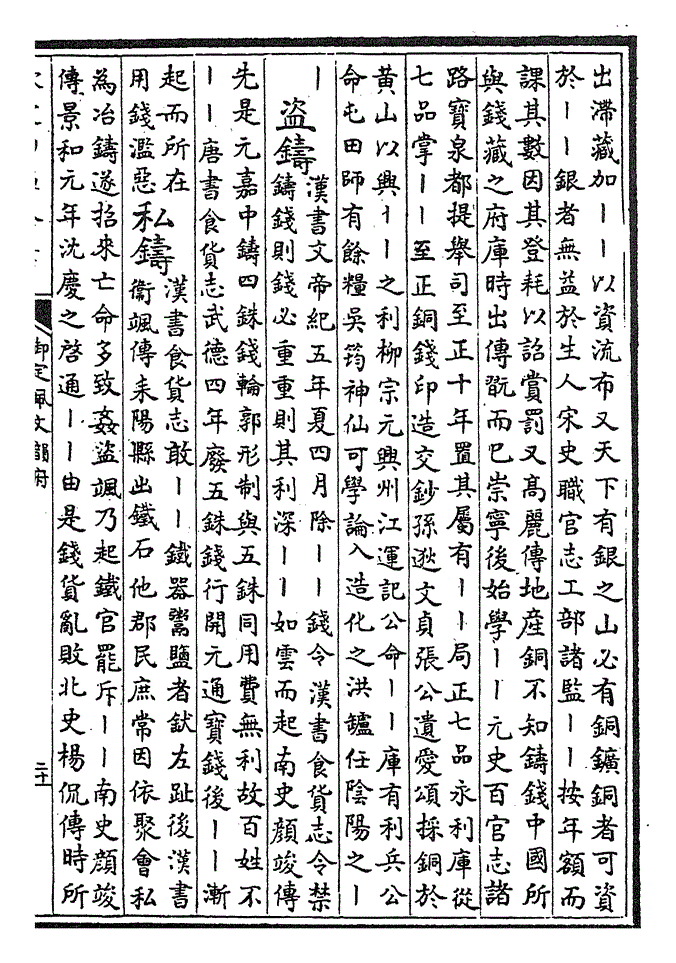 出滯藏加丨丨以資流布又天下有銀之山必有銅鑛銅者可資
於丨丨銀者無益於生人宋史職官志工部諸監丨丨按年額而
課其數因其登耗以詔賞罰又高麗傳地産銅不知鑄錢中國所
與錢藏之府庫時出傳翫而已崇寧後始學丨丨元史百官志諸
路寶泉都提舉司至正十年置其屬有丨丨局正七品永利庫從
七品掌丨丨至正銅錢印造交鈔孫逖文貞張公遺愛頌採銅於
黄山以興丨丨之利柳宗元興州江運記公命丨丨庫有利兵公
命屯田師有餘糧吳筠神仙可學論入造化之洪鑪任陰陽之丨
丨
盗鑄
漢書文帝紀五年夏四月除丨丨錢令漢書食貨志令禁
鑄錢則錢必重重則其利深丨丨如雲而起南史顔竣傳
先是元嘉中鑄四銖錢輪郭形制與五銖同用費無利故百姓不
丨丨唐書食貨志武德四年廢五銖錢行開元通寶錢後丨丨漸
起而所在
用錢濫惡
私鑄
漢書食貨志敢丨丨鐵器鬻鹽者釱左趾後漢書
衞颯傳耒陽縣出鐵石他郡民庶常因依聚會私
為冶鑄遂招來亡命多致姦盗颯乃起鐵官罷斥丨丨南史顔竣
傳景和元年沈慶之啓通丨丨由是錢貨亂敗北史楊侃傳時所
御定佩文韻府
二十